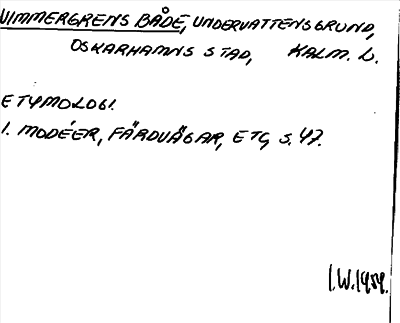 VIMMERGRENS BÅDE, UNDERVATTENSGRUND,
OSKARHAMNS STAD, KALM. L.
ETYMOLOGI.
1. MODÉER, FÄRDVÄGAR, ETC, S. 47.
I.W. 1959.